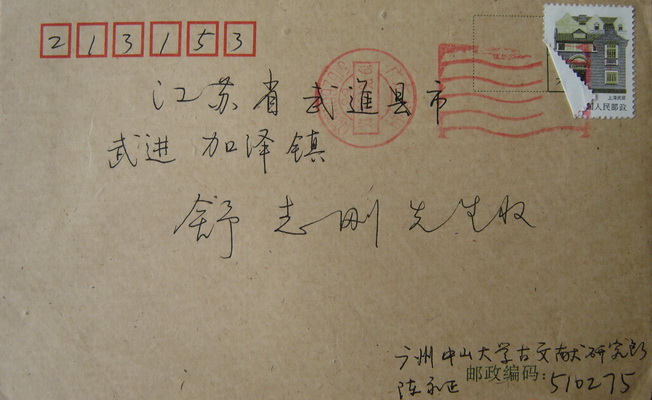 213153
江苏省武進县市
武进 加泽镇
舒志刚先生收
广州中山大学古文献研究所
陈永正 邮政编码：510275
上海民居
中国人民邮政